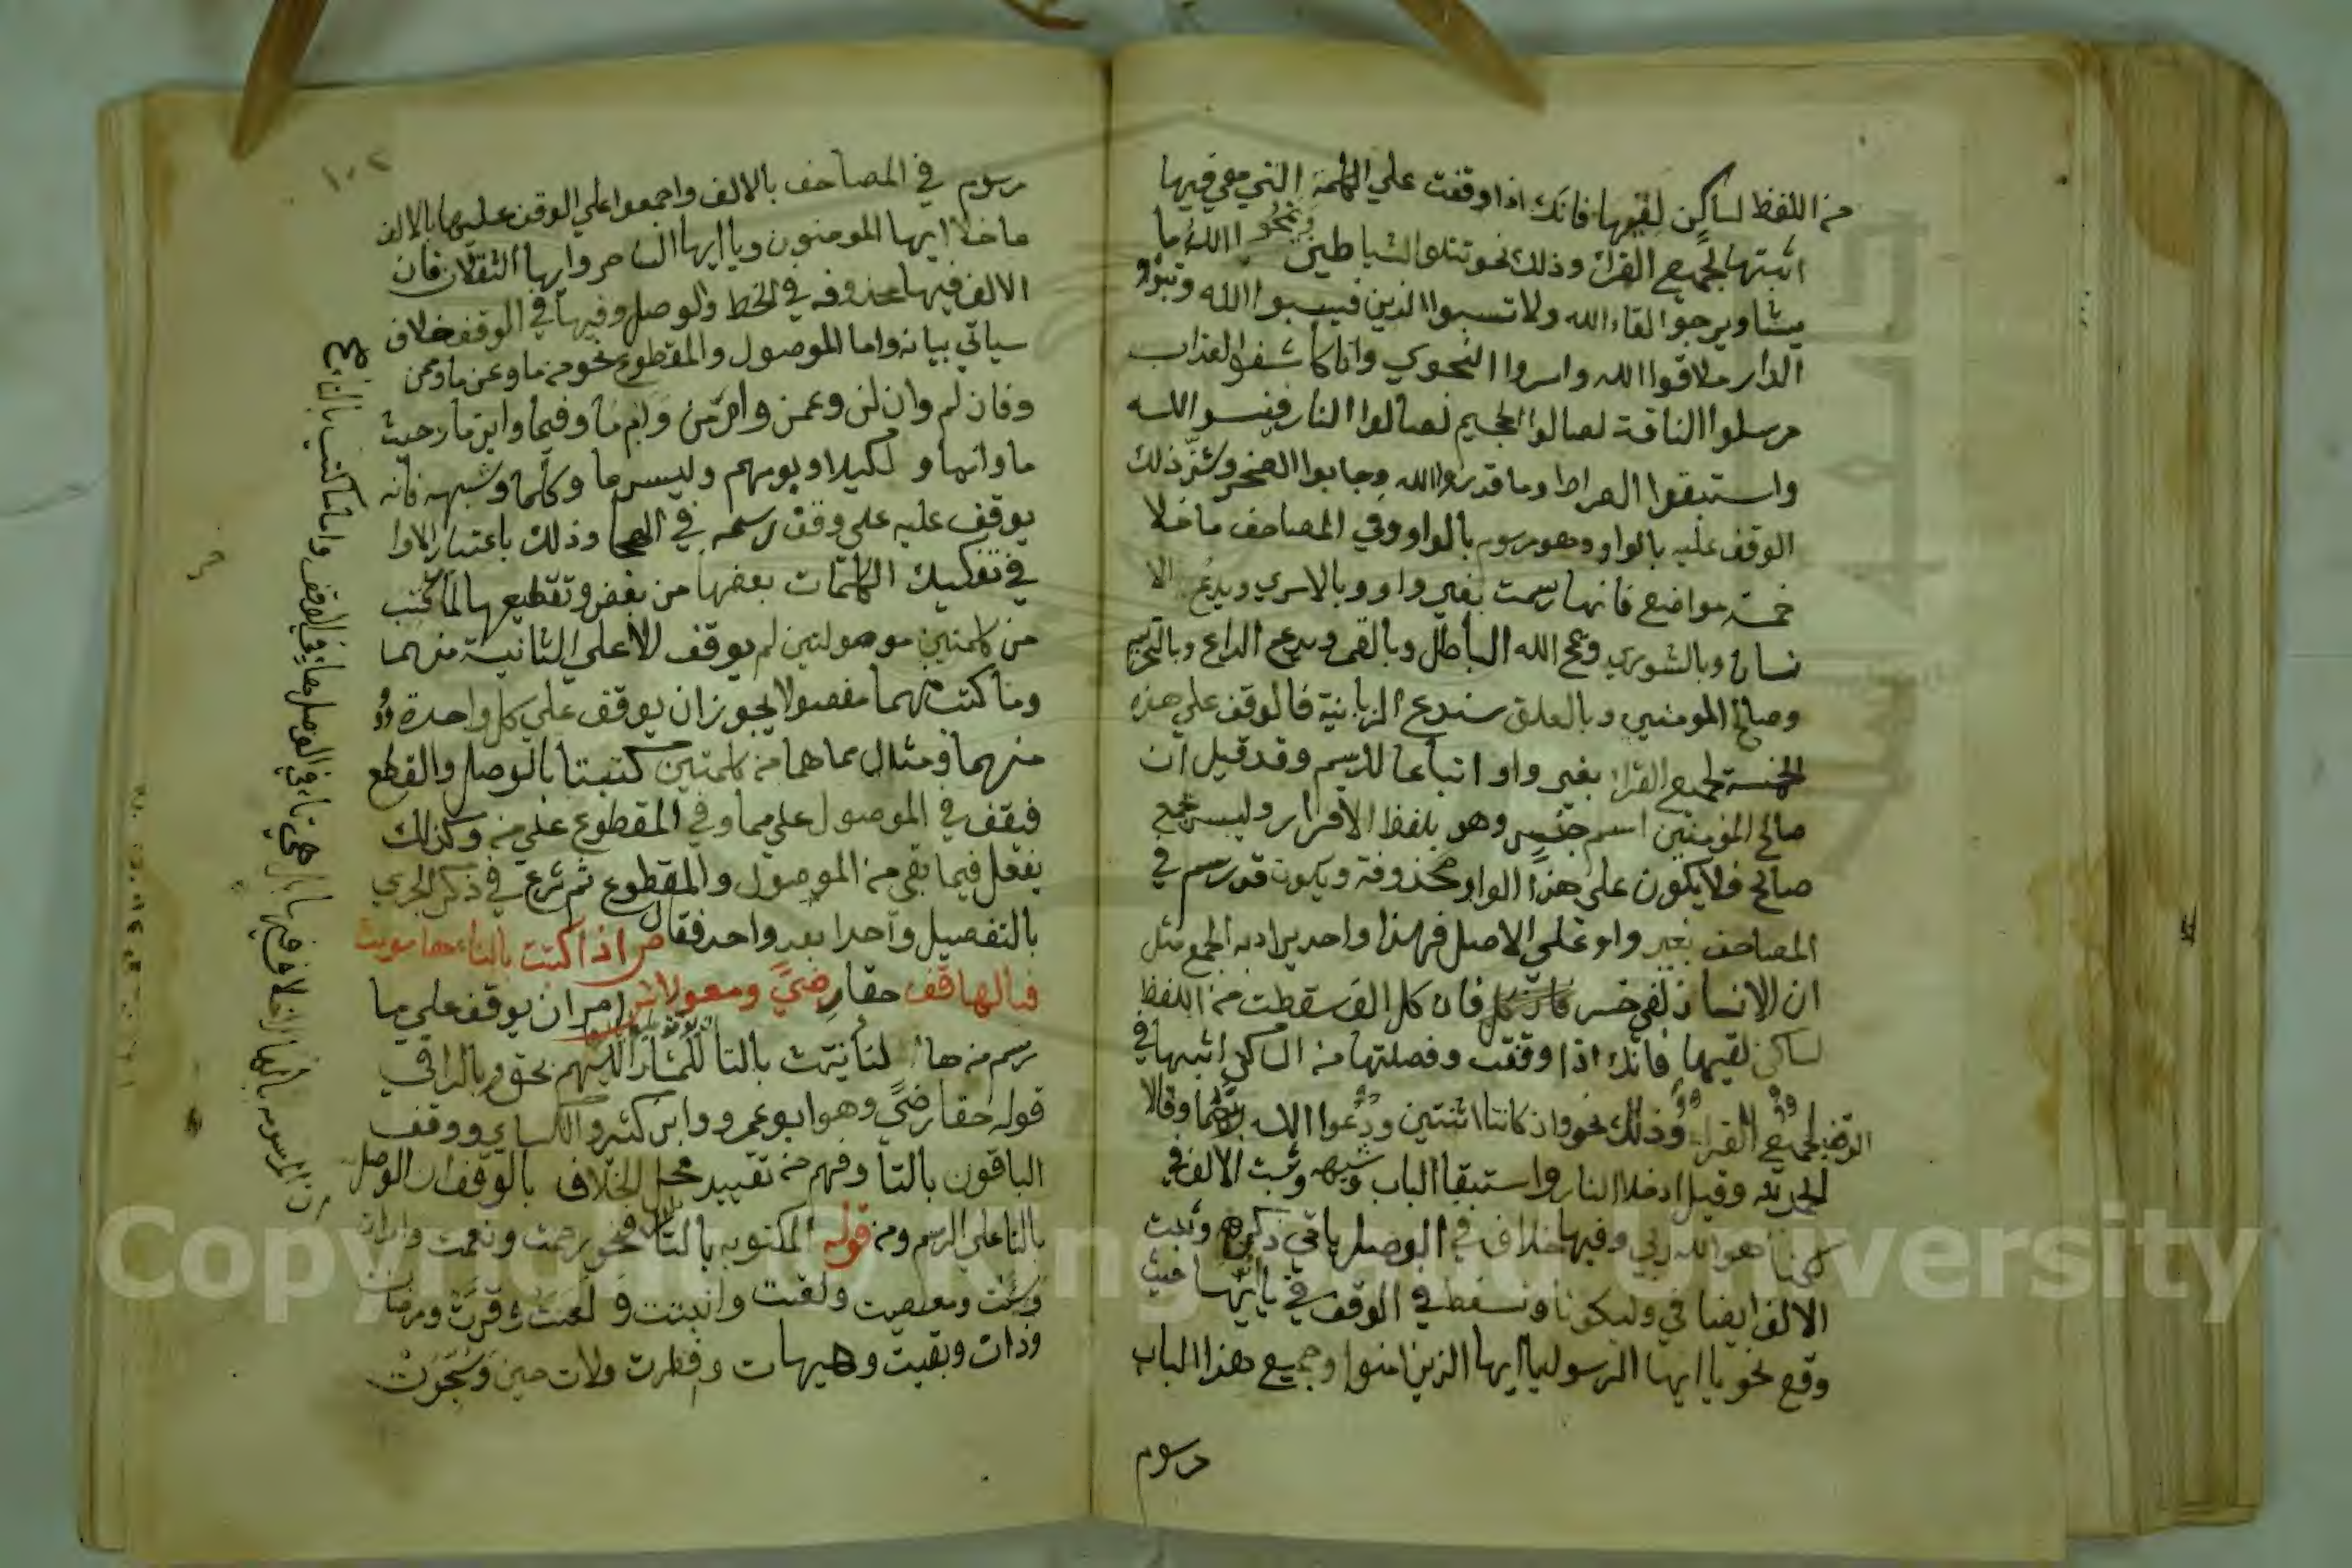 من اللفظ لساكن لقيها فانك اذا وقفت علي الكلمة التي هي فيها
اثبتها لجميع القراء وذلك نحو تتلوا الشياطين ويمحوا الله ما
يشا ويرجوا لقاء الله ولا تسبوا الذين فيسبوا الله وتبوؤ
الدار ملاقوا الله واسروا النجوي وانا كاشفوا العذاب
مرسلوا الناقة لصالوا الجحيم لصالوا النار فنسوا الله
واستبقوا الصراط وما قدروا الله وجابوا الصخر وشبه ذلك
الوقف عليه بالواو وهو مرسوم بالواو وفي المصاحف ما خلا
خمسة مواضع فانها رسمت بغير واو وبالاسري ويدع الا
نسان وبالشوري ويمح الله الباطل وبالقمر ويدع الداع وبالتحريم
وصالح المومنين وبالعلق سندع الزبانية فالوقف علي هذه
الخمسة لجميع القراء بغير واو اتباعا للرسم وقد قيل ان
صالح المؤمنين اسم جنس وهو بلفظ الافراد وليس بجمع
صالح فلا يكون علي هذا الواو محذوفة ويكون قد رسم في
المصاحف بغير واو علي الاصل فهذا واحد يراد به الجمع مثل
ان الانسان لفي خسر فان كل الف سقطت من اللفظ
لساكن لقيها فانك اذا وقفت وفصلتها من الساكن اثبتها في
الوقف لجميع القراء وذلك نحو وان كانتا اثنتين ودعوا الله ربهما وقالا
الحمد لله وقيل ادخلا النار واستبقا الباب وشبهه وثبت الالف في
لكنا هو الله ربي وفيها خلاف في الوصل ياتي ذكره وثبت
الالف ايضا في وليكونا وتسقط في الوقف في يا ايها حيث
وقع نحو يا ايها الرسول يا ايها الذين امنوا وجميع هذا الباب
مرسوم
١٠٢
مرسوم في المصاحف بالالف واجمعوا علي الوقف عليها بالالف
ما خلا ايها المومنون ويا ايها الساحر وايها الثقلان فان
الالف فيها محذوفه في الخط والوصل وفيها في الوقف خلاف
سياتي بيانه واما الموصول والمقطوع نحو من ما وعن ما وممن
وفان لم وان لن وعمن وام من وام ما وفيما واين ما وحيث
ما وانما و لكيلا ويومهم وليس ما وكلما وشبهه فانه
يوقف عليه علي وفق رسمه في الهجا وذلك باعتبار الاوا
في تفكيك الكلمات بعضها من بعض وتقطيعها لما كتب
من كلمتين موصولتين لم يوقف الا علي الثانية منهما
وما كتب منهما مفصولا يجوز ان يوقف علي كل واحدة
منهما ومثال مما هما من كلمتين كتبتا بالوصل والقطع
فيقف في الموصول علي مما وفي المقطوع علي من وكذلك
يفعل فيما بقي من الموصول والمقطوع ثم شرع في ذكر الجزي
بالتفصيل واحدا بعد واحد فقال ص اذا كتبت بالتاء هاء مونث
فبالهاء قف حقا رضي ومعولا ش امر ان يوقف علي ما
رسم من هاء التأنيث بالتا للمشار اليهم بحق وبالراء في
قوله حقا رضي وهو ابو عمرو وابن كثير والكساي ووقف
الباقون بالتا وفهم من تقييد محل الخلاف بالوقف ان الوصل
بالتا علي الرسم ومن قوله المكتوبه بالتا نحو رحمت ونعمت وامرات
وسنت ومعصيت ولعنت وابنت و قرت ومرضات
وذات وبقيت وهيهات وفطرت ولات حين وشجرت